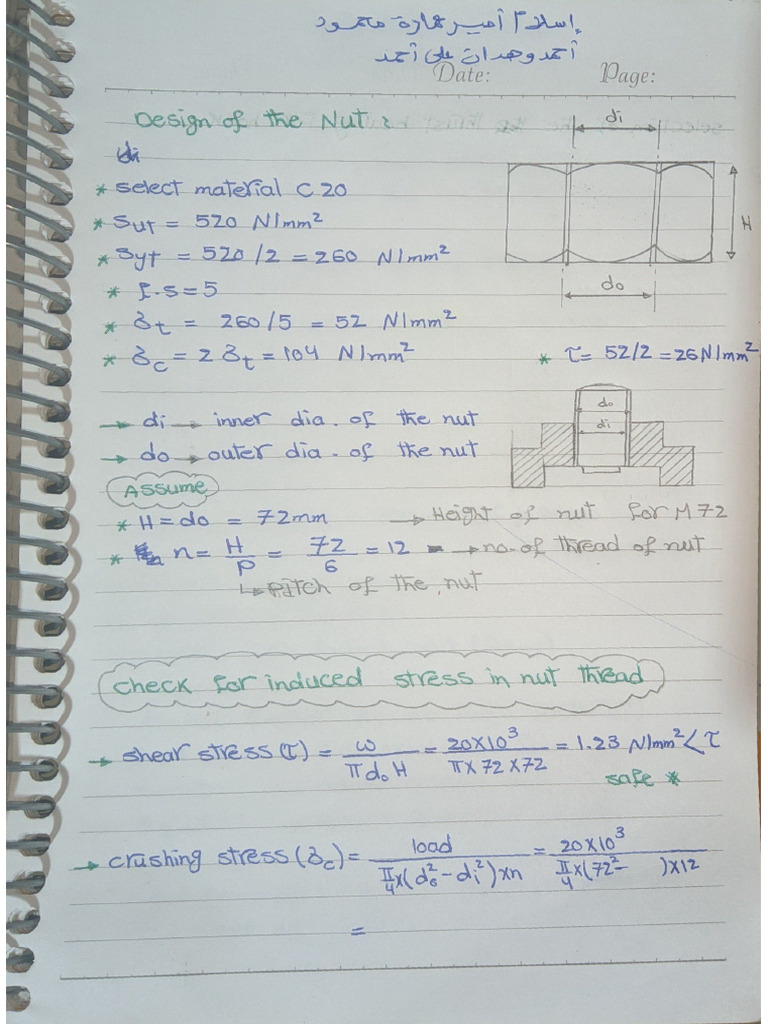 إسلام أمير عمارة محمود
أحمد وهدان على أحمد
Date: Page:
Design of the Nut:
di
* select material C 20
* Sut = 520 N/mm²
* Syt = 520/2 = 260 N/mm²
* f.s = 5
* δt = 260/5 = 52 N/mm²
* δc = 2 δt = 104 N/mm²
* τ = 52/2 = 26 N/mm²
di
H
do
→ di → inner dia. of the nut
→ do → outer dia. of the nut
do
di
Assume
* H = do = 72mm → Height of nut for M72
* n = H/P = 72/6 = 12 → no. of thread of nut
↳ Pitch of the nut
check for induced stress in nut thread
→ shear stress (τ) = ω/(π do H) = 20×10³/(π×72×72) = 1.23 N/mm² < τ
safe *
→ crushing stress (δc) = load/(π/4×(do²-di²)×n) = 20×10³/(π/4×(72²- )×12
=